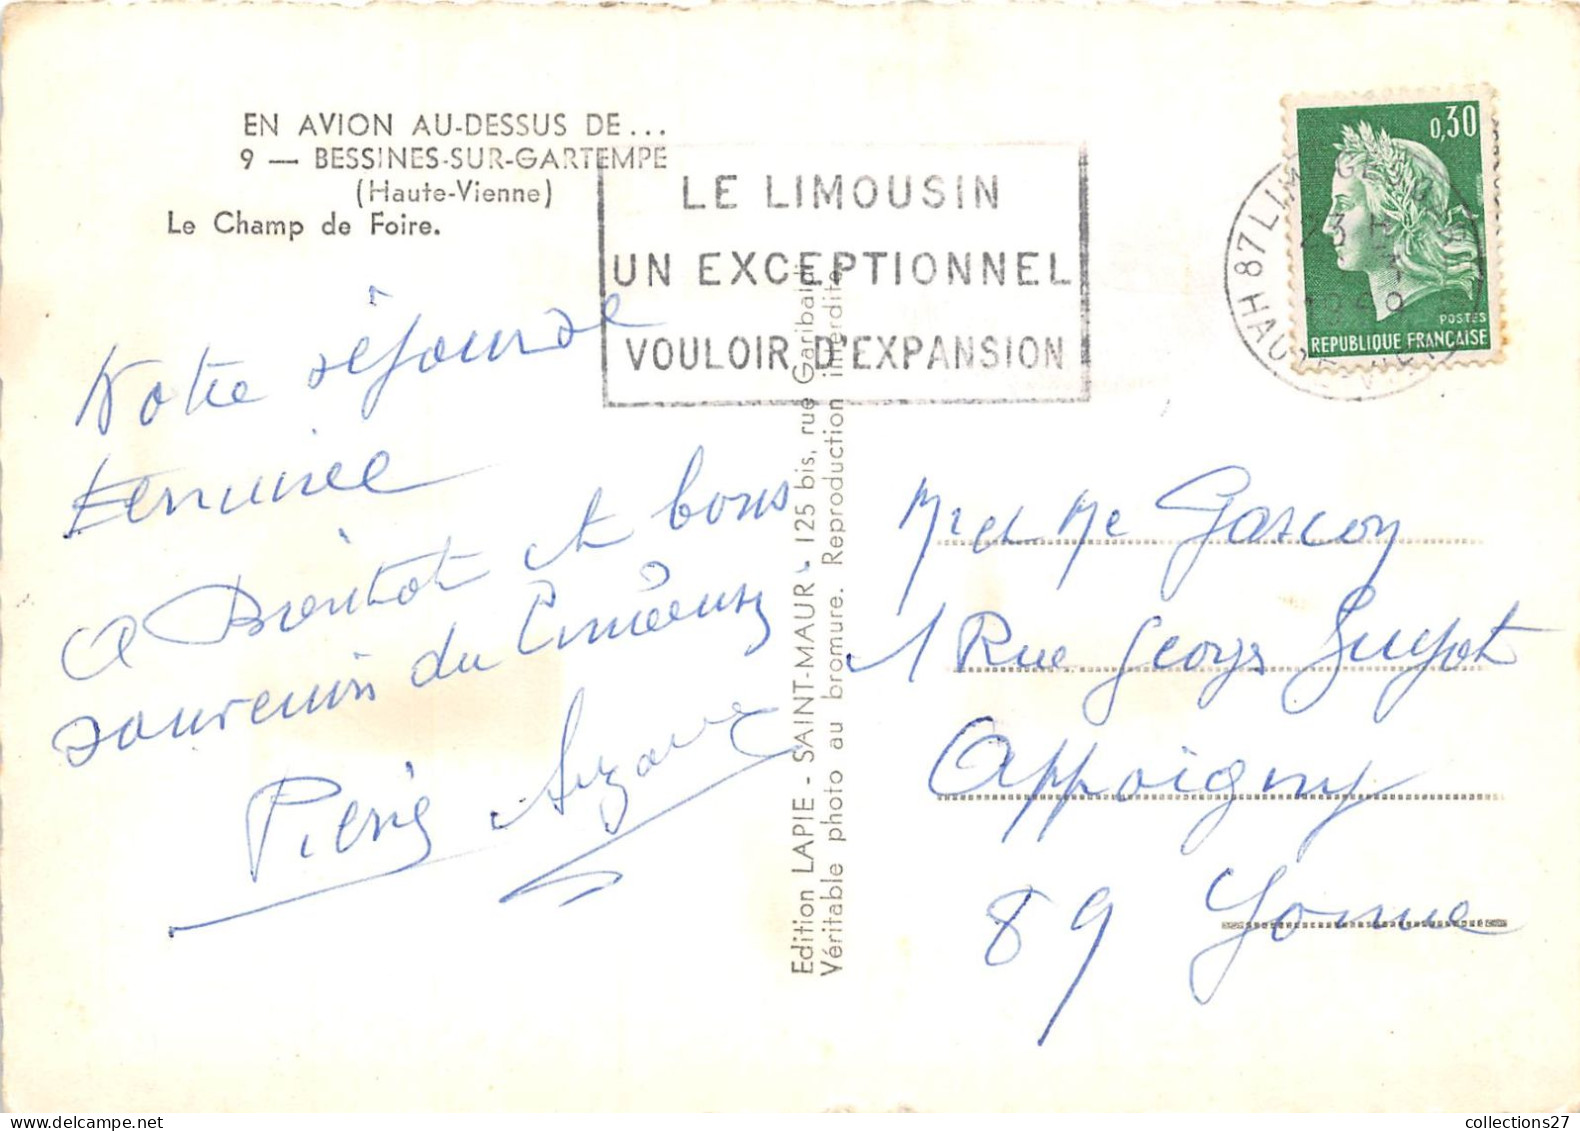 EN AVION AU-DESSUS DE...
9 — BESSINES-SUR-GARTEMPE
(Haute-Vienne)
Le Champ de Foire.
LE LIMOUSIN
UN EXCEPTIONNEL
VOULOIR D'EXPANSION
0,30
POSTES
REPUBLIQUE FRANÇAISE
87 LIMOGES
Notre séjour se
termine
a Bientot et bons
souvenirs du Limousin
Pierre Suzanne
Edition LAPIE - SAINT-MAUR - 125 bis, rue Garibaldi
Véritable photo au bromure. Reproduction interdite
Mr et Me Gascon
1 Rue Georges Guyot
Appoigny
89 Yonne
collections27